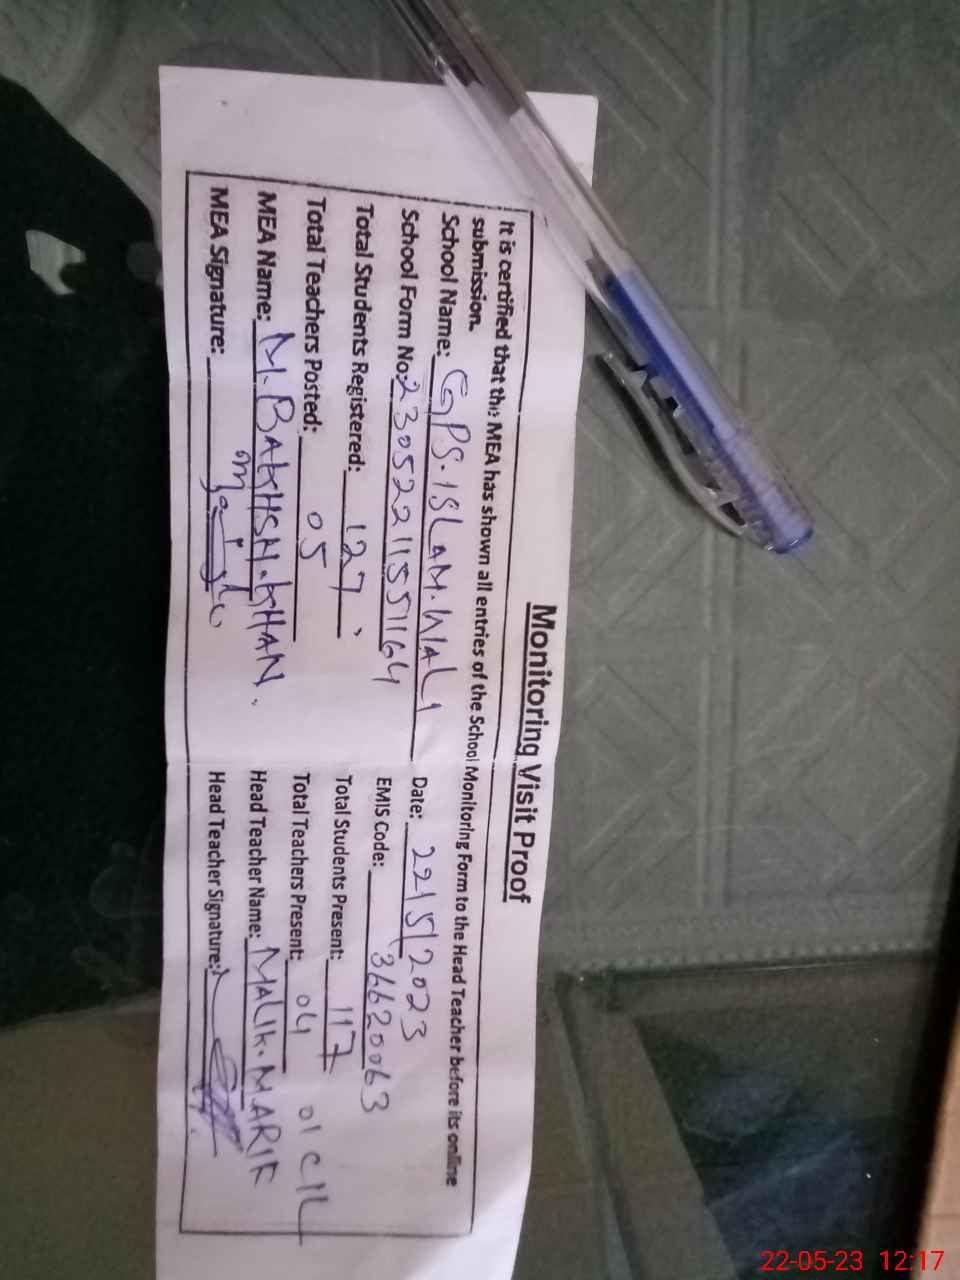 Monitoring Visit Proof
It is certified that the MEA has shown all entries of the School Monitoring Form to the Head Teacher before its online
submission.
School Name: GPS. ISLAM. WALI Date: 22/5/2023
School Form No: 23052211551164 EMIS Code: 36620063
Total Students Registered: 127 Total Students Present: 117
Total Teachers Posted: 05 Total Teachers Present: 04 01 C/L
MEA Name: M. BAKHSH. KHAN. Head Teacher Name: MALIK. M ARIF
MEA Signature: Head Teacher Signature:
22-05-23 12:17